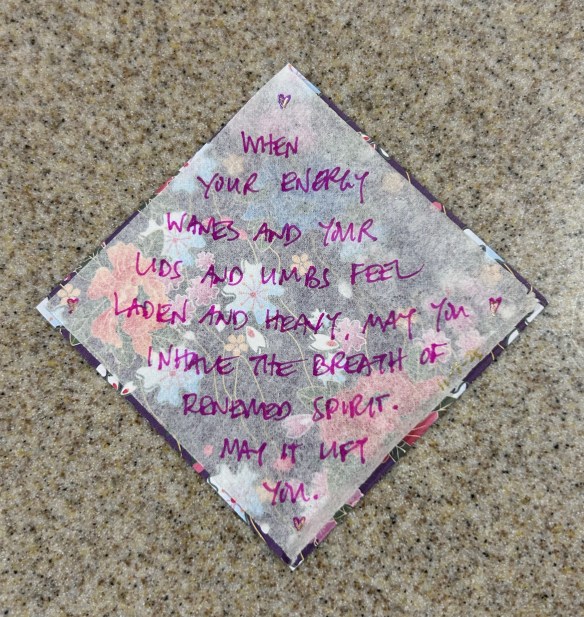 WHEN
YOUR ENERGY
WANES AND YOUR
LIDS AND LIMBS FEEL
LADEN AND HEAVY, MAY YOU
INHALE THE BREATH OF
RENEWED SPIRIT.
MAY IT LIFT
YOU.